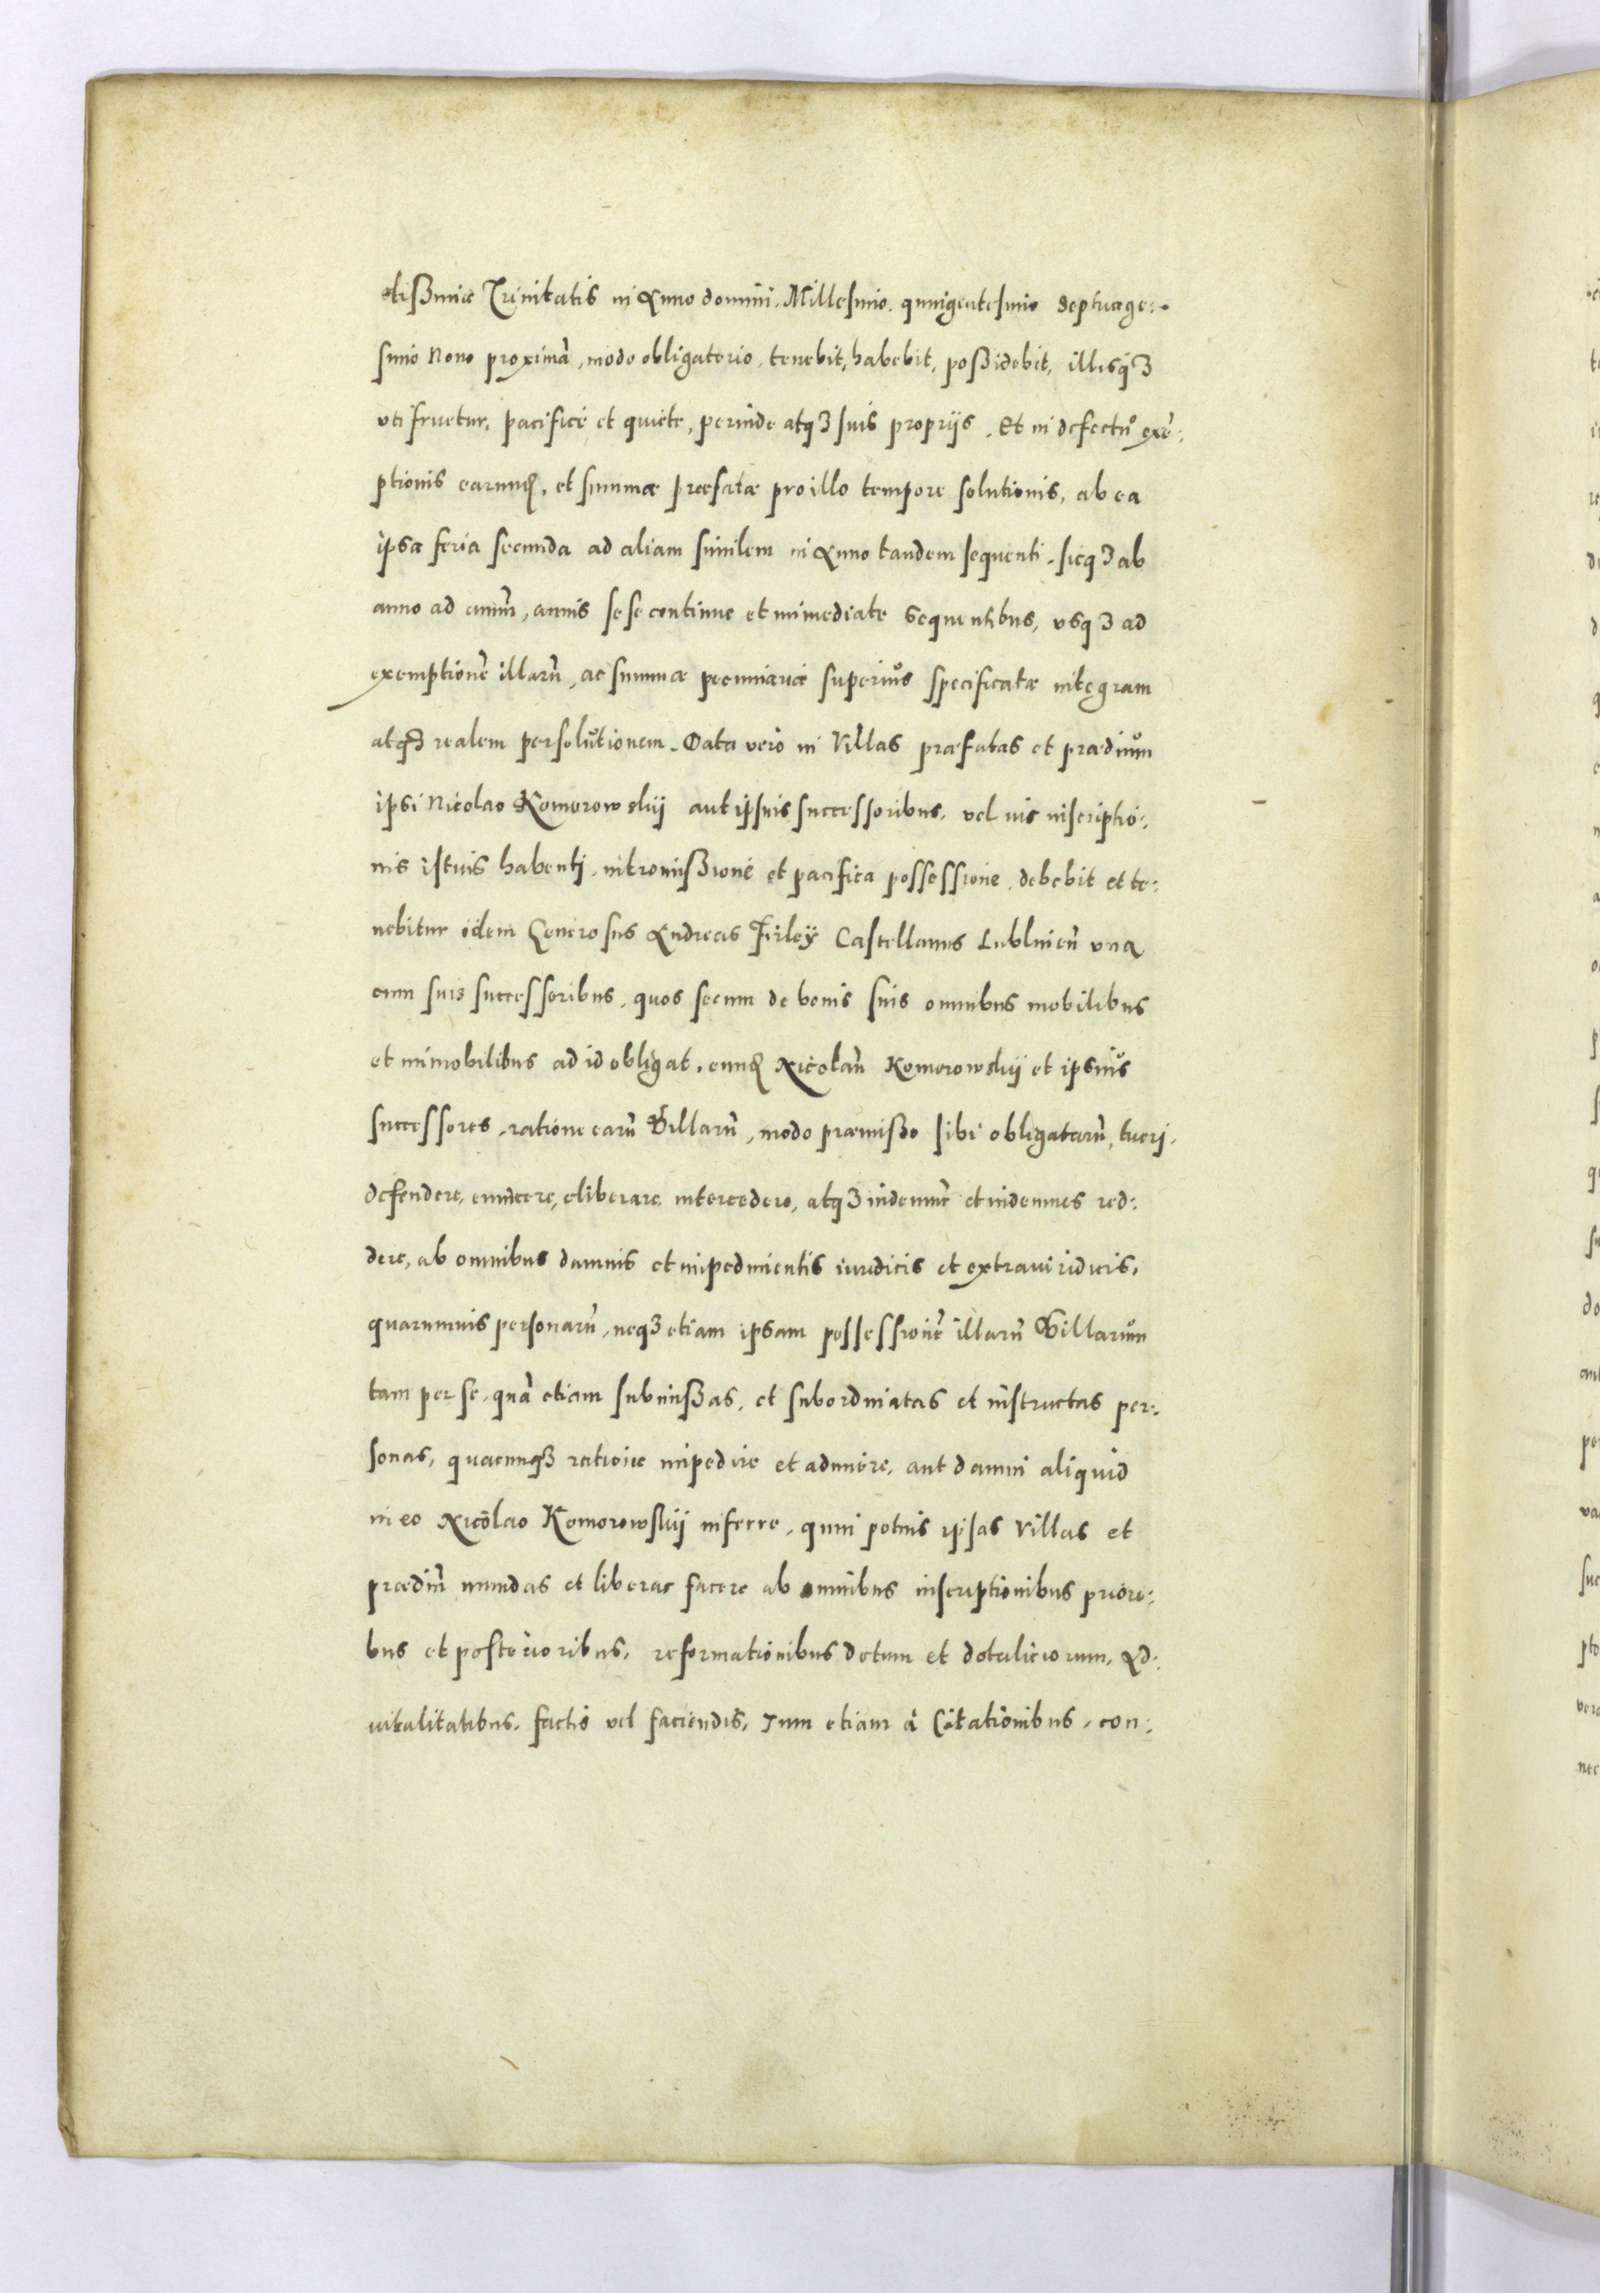 ctissimæ Trinitatis in Anno domini. Millesimo. quingentesimo Septuage:
simo Nono proximã, modo obligatorio, tenebit, habebit, possidebit, illisq3
uti fruetur, pacificè et quiete, perinde atq3 suis proprijs. Et in defectũ exẽ:
ptionis earund, et summæ præfatæ pro illo tempore solutionis, ab ea
ipsa feria secunda ad aliam similem in Anno tandem sequenti. sicq3 ab
anno ad annũ, annis sese continue et immediate sequentibus, usq3 ad
exemptionẽ illarũ, ac summæ pecuniariæ superius specificatæ integram
atq3 realem persolutionem. Data verò in Villas præfatas et prædium
ipsi Nicolao Komorowskij aut ipsius successoribus, vel ius inscriptio:
nis istius habenti, intromissione et pacifica possessione, debebit et te:
nebitur idem Generosus Andreas Firleÿ Castellanus Lublineñ una
cum suis successoribus, quos secum de bonis suis omnibus mobilibus
et immobilibus ad id obligat, eund Nicolaũ Komorowskij et ipsius
successores, ratione earũ Villarũ, modo præmisso sibi obligatarũ, tueri,
defendere, euincere, eliberare, intercedere, atq3 indemnẽ et indemnes red:
dere, ab omnibus damnis et impedimentis iuridicis et extraiuridicis,
quarumuis personarũ, neq3 etiam ipsam possessionẽ illarũ Villarum
tam per se, quã etiam submissas, et subordinatas et instructas per:
sonas, quacunq3 ratione impedire et adimere, aut damni aliquid
in eo Nicolao Komorowskij inferre, quin potius ipsas Villas et
prædiũ mundas et liberas facere ab omnibus inscriptionibus priori:
bus et posterioribus, reformationibus dotum et dotaliciorum, Ad:
uitalitatibus, factis vel faciendis, Tum etiam à Citationibus, con: